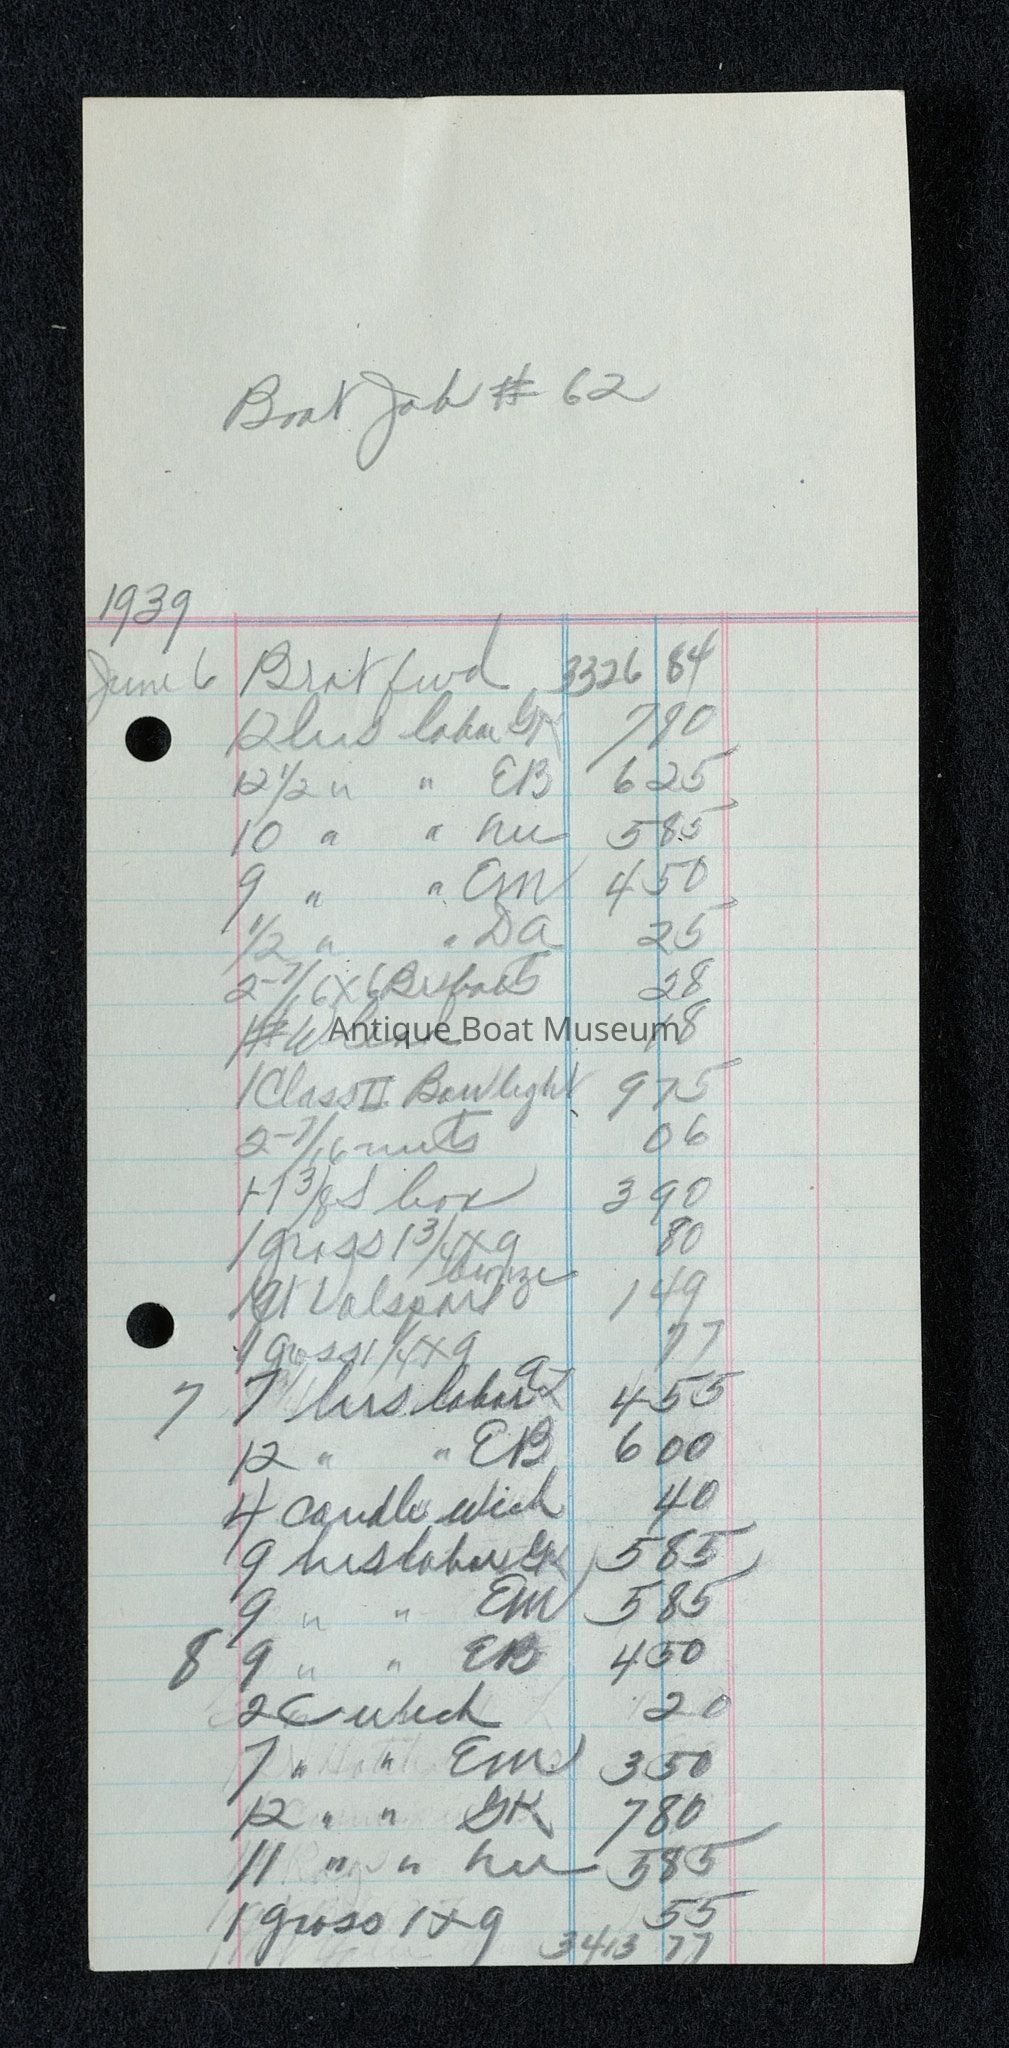 Boat Job # 62
1939
June 6 Brot fwd 3326 84
12 hrs labor GK 7 80
12 1/2 " " EB 6 25
10 " " hu 5 85
9 " " EM 4 50
1/2 " " DA 25
2-7/16 x 6 28
1# 18
1 Class II Bowlight 9 75
2-7/16 nuts 06
1-1 3/8 S box 3 90
1 gross 1 3/4 x 9 80
bronze
1 Qt Valspar 1 49
1 gross 1 1/4 x 9 77
7 7 hrs labor 4 55
12 " " EB 6 00
4 candle wick 40
9 hrs labor GK 5 85
9 " " EM 5 85
8 9 " " EB 4 50
2 C wick 20
7 " " EM 3 50
12 " " GK 7 80
11 " " hu 5 85
1 gross 1 x 9 55
3413 77
Antique Boat Museum